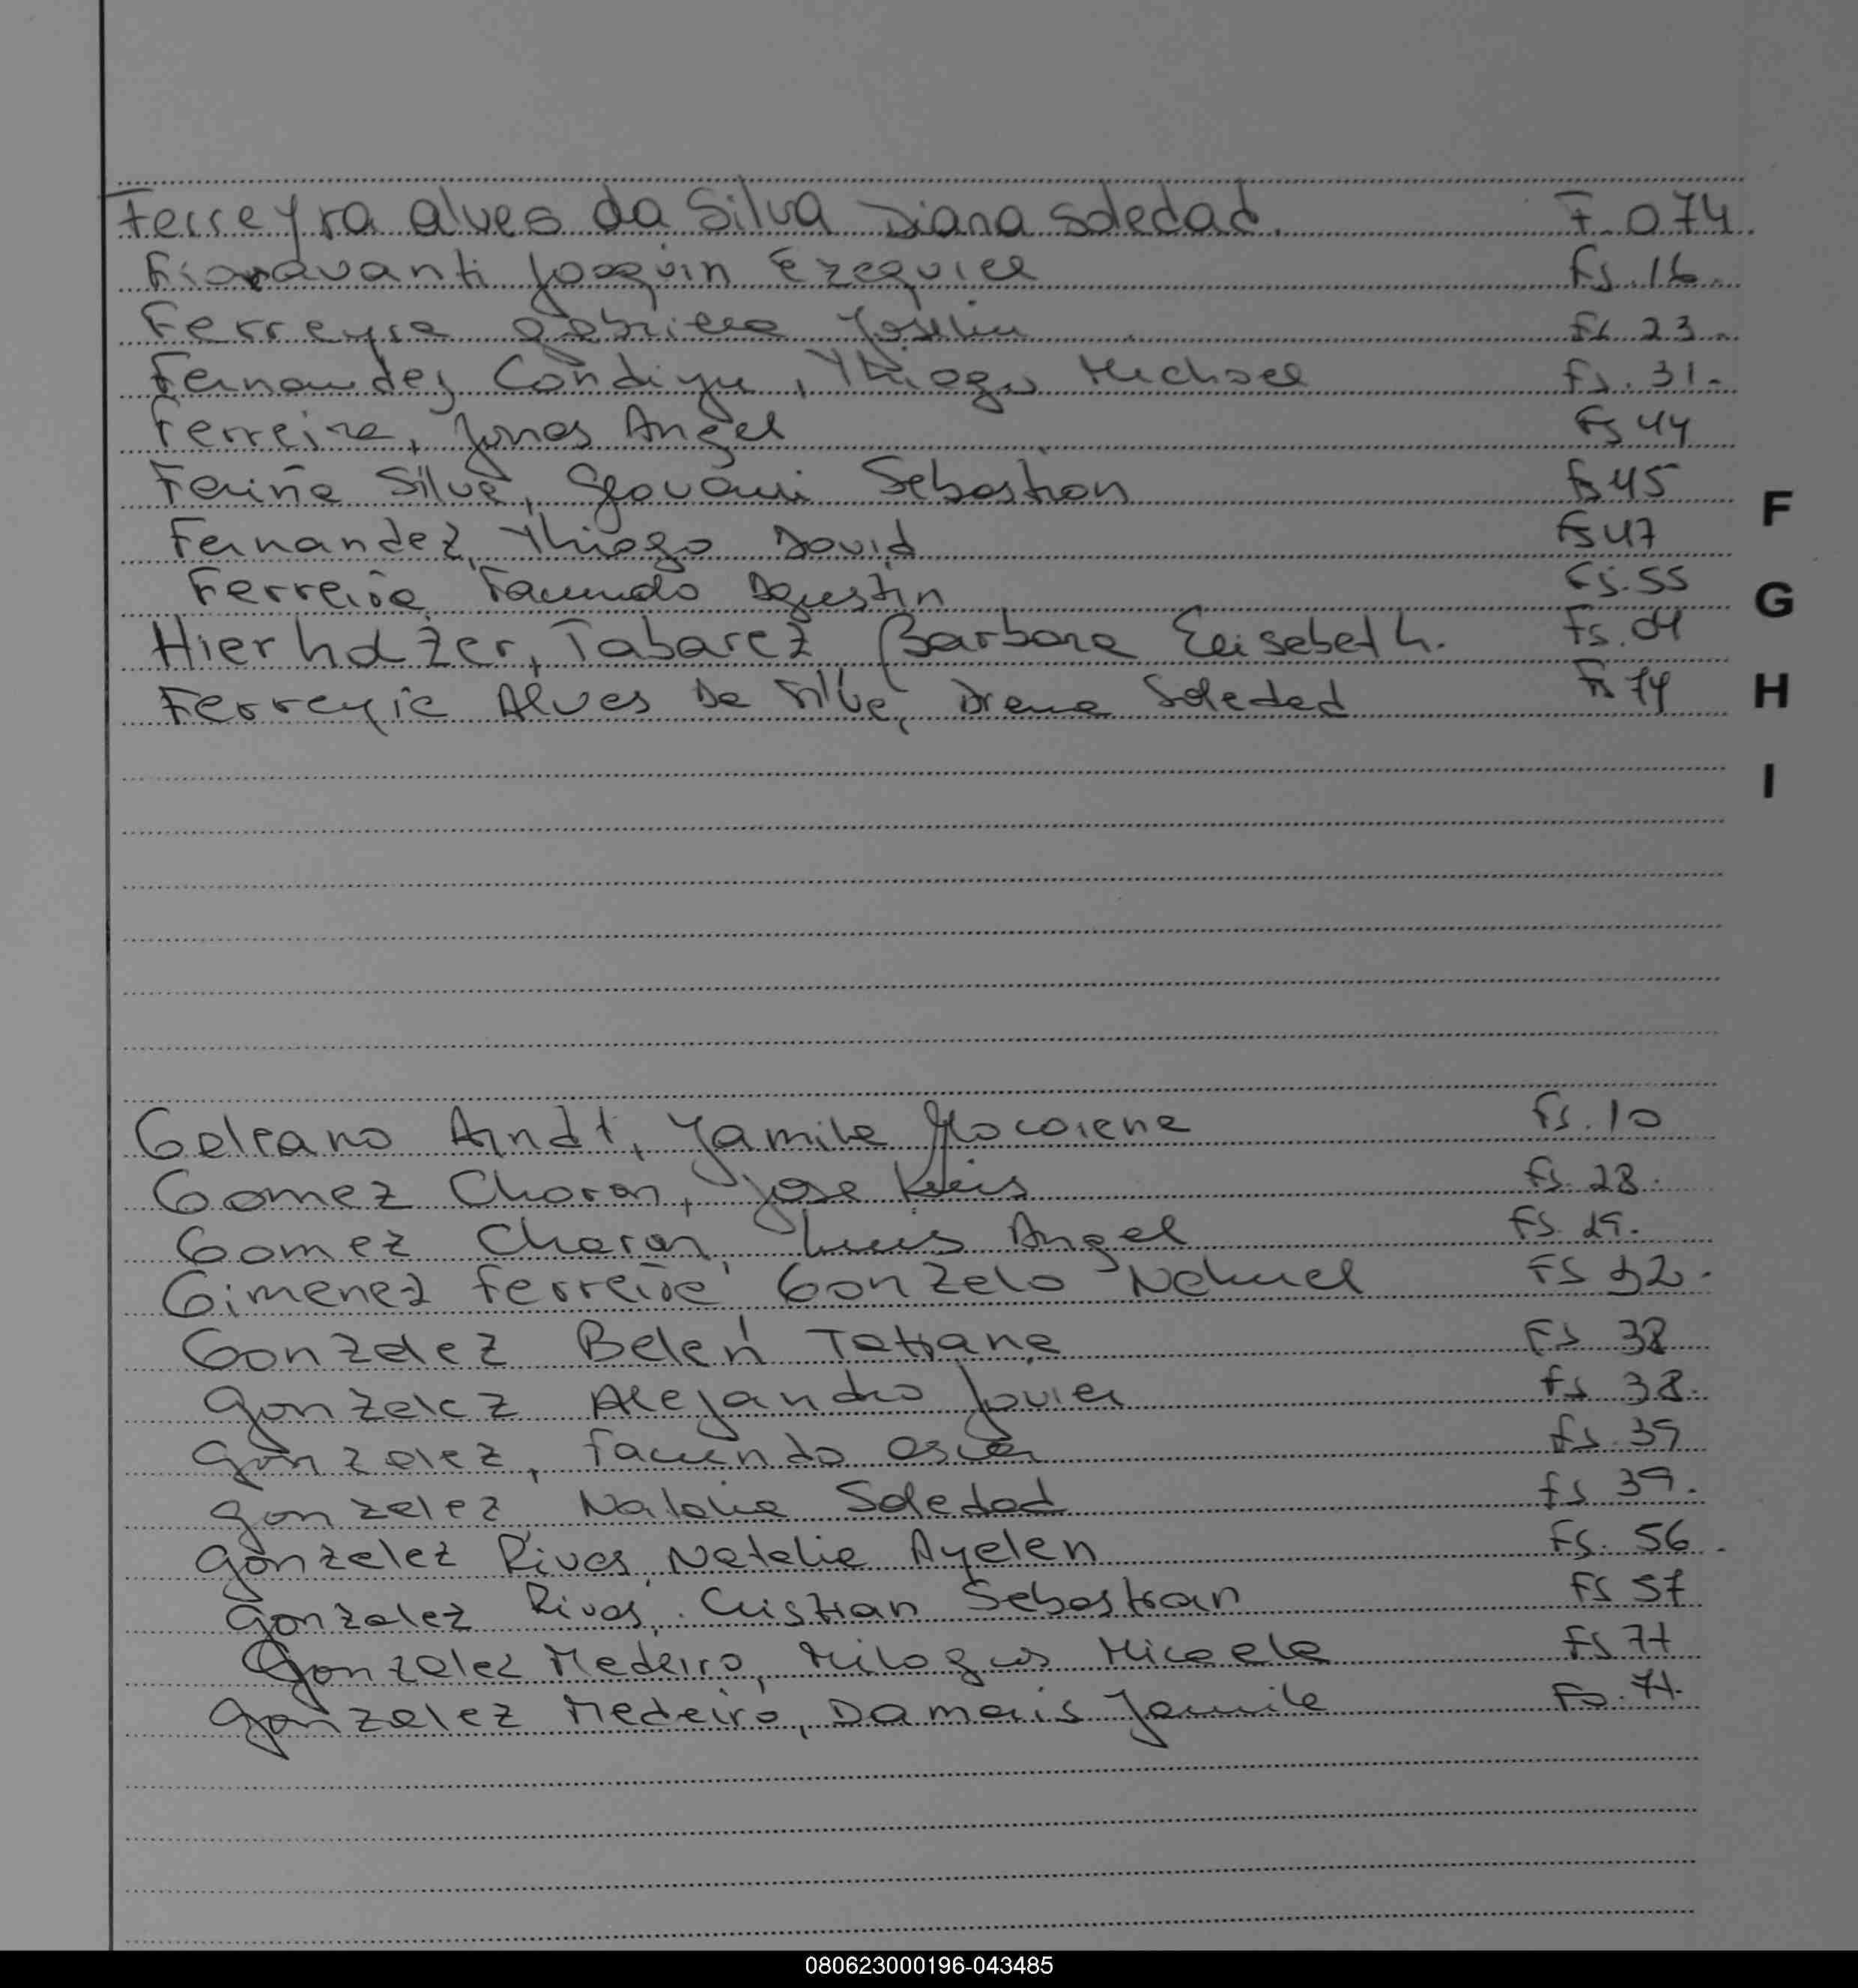 Ferreyra alves da Silva Diana Soledad. F. 074.
Fioravanti Joaquin Ezequiel Fs. 16.
Ferreyra Gabriela Joselin Fs 23.
Fernandez Condiyu, Thiago Michael Fs. 31.
Ferreira, Jonas Angel Fs 44
Fariña Silva, Geovani Sebastian Fs 45
F
Fernandez, Thiago David Fs 47
Ferreira, Facundo Agustin Fs. 55
G
Hierholzer, Tabarez, Barbara Elisabeth. Fs. 04
Ferreyra Alves Da Silva, Diana Soledad Fs 74
H
I
Galeano Arndt, Yamile Macarena Fs. 10
Gomez Charon, Jose Luis Fs. 28.
Gomez Charon, Luis Angel Fs. 29.
Gimenez Ferreira Gonzalo Nahuel Fs 32.
Gonzalez Belen Tatiana Fs 38
Gonzalez Alejandro Javier Fs 38.
Gonzalez, Facundo Oscar Fs. 39
Gonzalez, Natalia Soledad Fs 39.
Gonzalez Rivas, Natalia Ayelen Fs. 56.
Gonzalez Rivas, Cristian Sebastian Fs 57
Gonzalez Medeiro, Milagros Micaela Fs 71
Gonzalez Medeiro, Damaris Jamile Fs. 71.
080623000196-043485